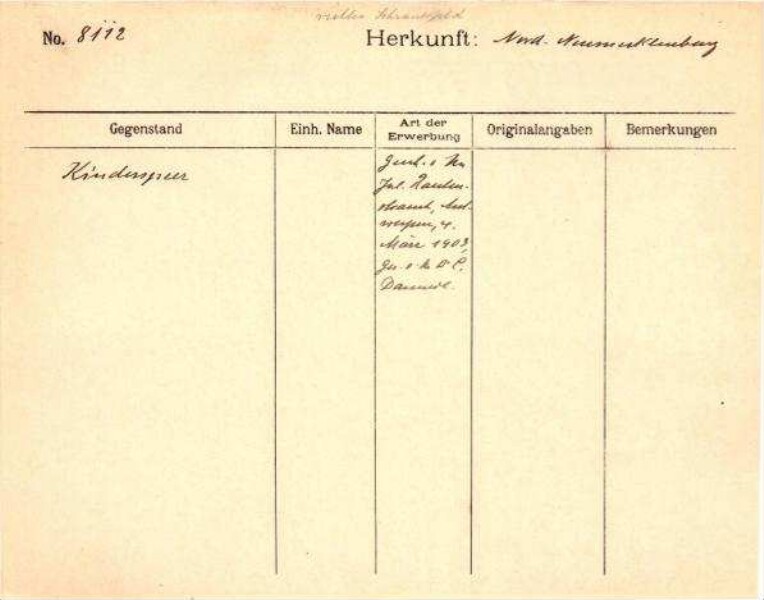 No. 8112
Herkunft: Nord. Neumecklenburg
Gegenstand
Einh. Name
Art der Erwerbung
Originalangaben
Bemerkungen
Kinderspeer
Gesch. v. Hn
Jul. Rauten-
strauch, Ant-
werpen, 4.
März 1903,
ges. v. H. Dr